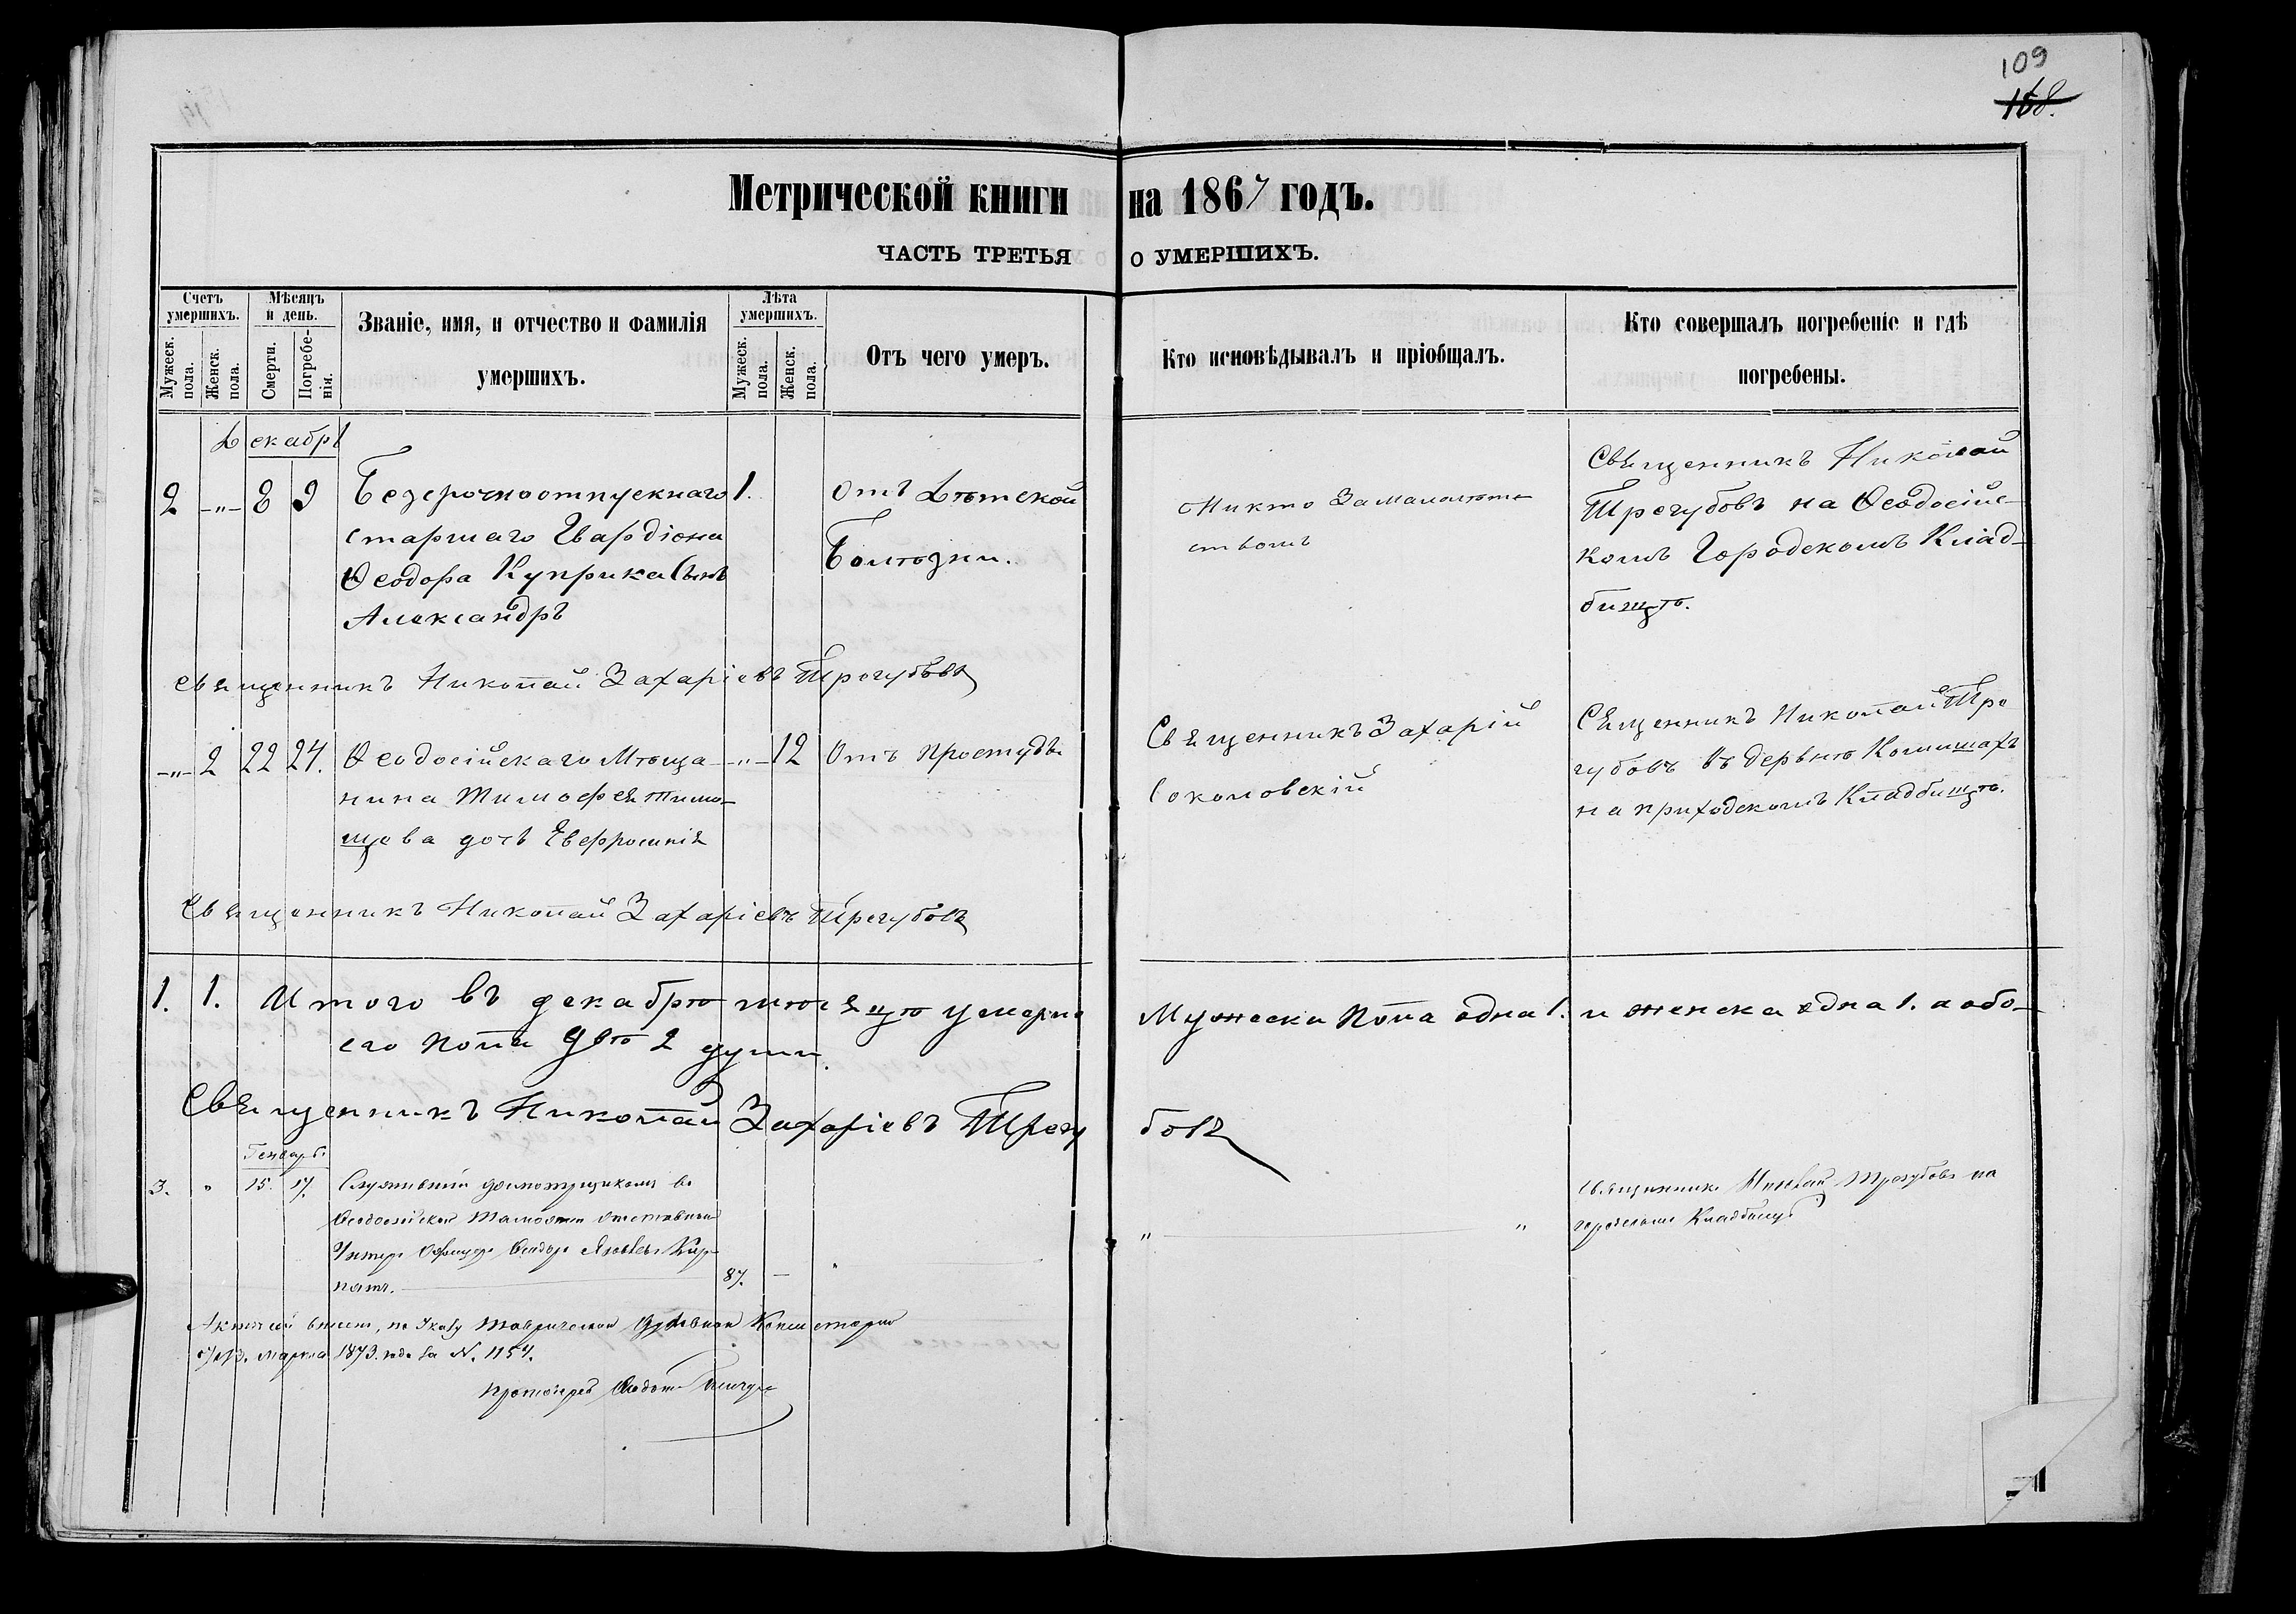 109
168.
Метрической книги на 1867 годъ.
ЧАСТЬ ТРЕТЬЯ О УМЕРШИХЪ.
Счетъ умершихъ.
Мужеск. пола.
Женск. пола.
Мѣсяцъ и день.
Смерти.
Погребенія.
Званіе, имя, и отчество и фамилія умершихъ.
Лѣта умершихъ.
Мужеск. пола.
Женск. пола.
Отъ чего умеръ.
Кто исповѣдывалъ и пріобщалъ.
Кто совершалъ погребеніе и гдѣ погребены.
Декабрь
2 -"- 8 9 Безсрочноотпускнаго 1. Отъ Дѣтской
старшаго Гвардіона Болѣзни.
Ѳеодора Куприка Сынъ
Александръ
Никто За малолѣт-
ствомъ
Священникъ Николай
Трегубовъ на Ѳеодосійс-
комъ Городскомъ Клад-
бищѣ.
Священникъ Николай Захаріевъ Трегубовъ
-"- 2 22 24. Ѳеодосійскаго Мѣща- -"- 12 Отъ Простуды
нина Тимофея Тимо-
щова дочь Евфросинія
Священникъ Захарій
Соколовскій
Священникъ Николай Тре
губовъ въ дервнѣ Комишахъ
на приходскомъ Кладбищѣ.
Священникъ Николай Захаріевъ Трегубовъ
1. 1. Итого въ декабрѣ мѣсяцѣ умерло Мужеска Пола одна 1. и женска одна 1. а обо-
его пола двѣ 2 души.
Священникъ Николай Захаріевъ Трегубовъ
Генварь
3. " 15. 17. Служившій досмотрщикомъ въ
Ѳеодосійской Таможни отставной
Унтеръ Офицеръ Ѳеодоръ Яковлевъ Кир-
патъ. 87. — "
" — "
Священникъ Николай Трегубовъ на
городскомъ Кладбищѣ
Актъ сей внесенъ, по Указу Таврической Духовной Консисторіи
13. Марта 1873. года за N. 1154.
Протоіерей